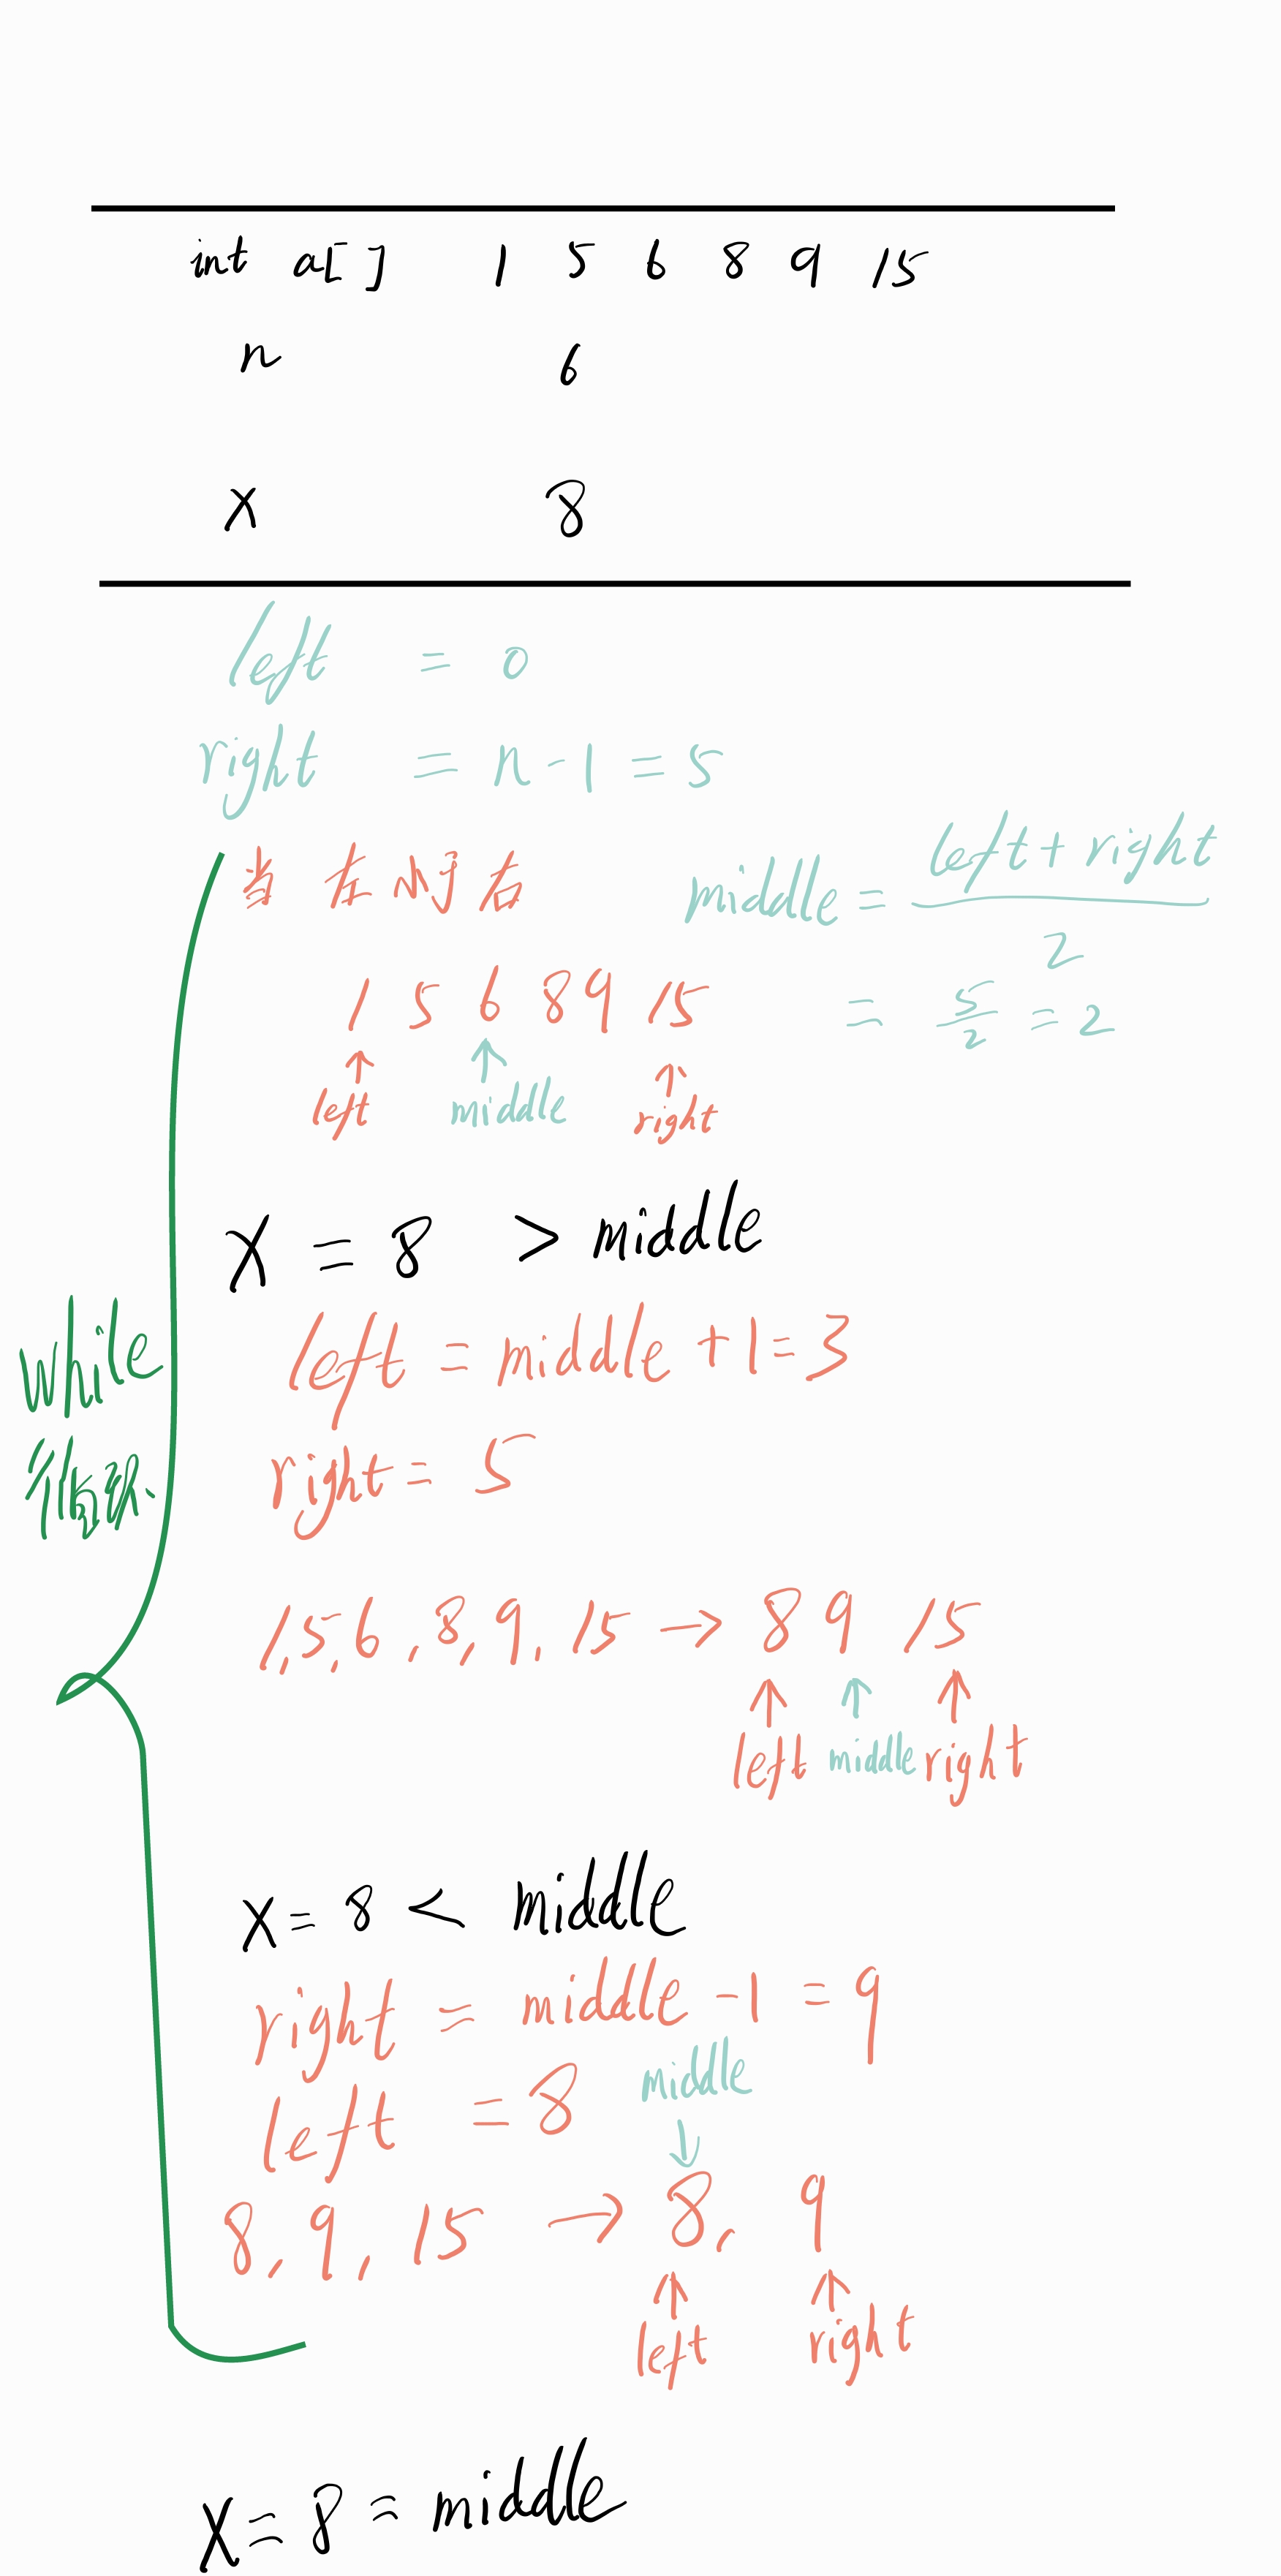 int a[] 1 5 6 8 9 15
n 6
X 8
left = 0
right = n-1 = 5
当 左 小于 右
middle = left + right / 2
= 5/2 = 2
1 5 6 8 9 15
↑ ↑ ↑
left middle right
X = 8 > middle
left = middle +1 = 3
right = 5
while
循环
1,5,6,8,9,15 → 8 9 15
↑ ↑ ↑
left middle right
X = 8 < middle
right = middle -1 = 9
left = 8
middle
↓
8, 9, 15 → 8, 9
↑ ↑
left right
X = 8 = middle